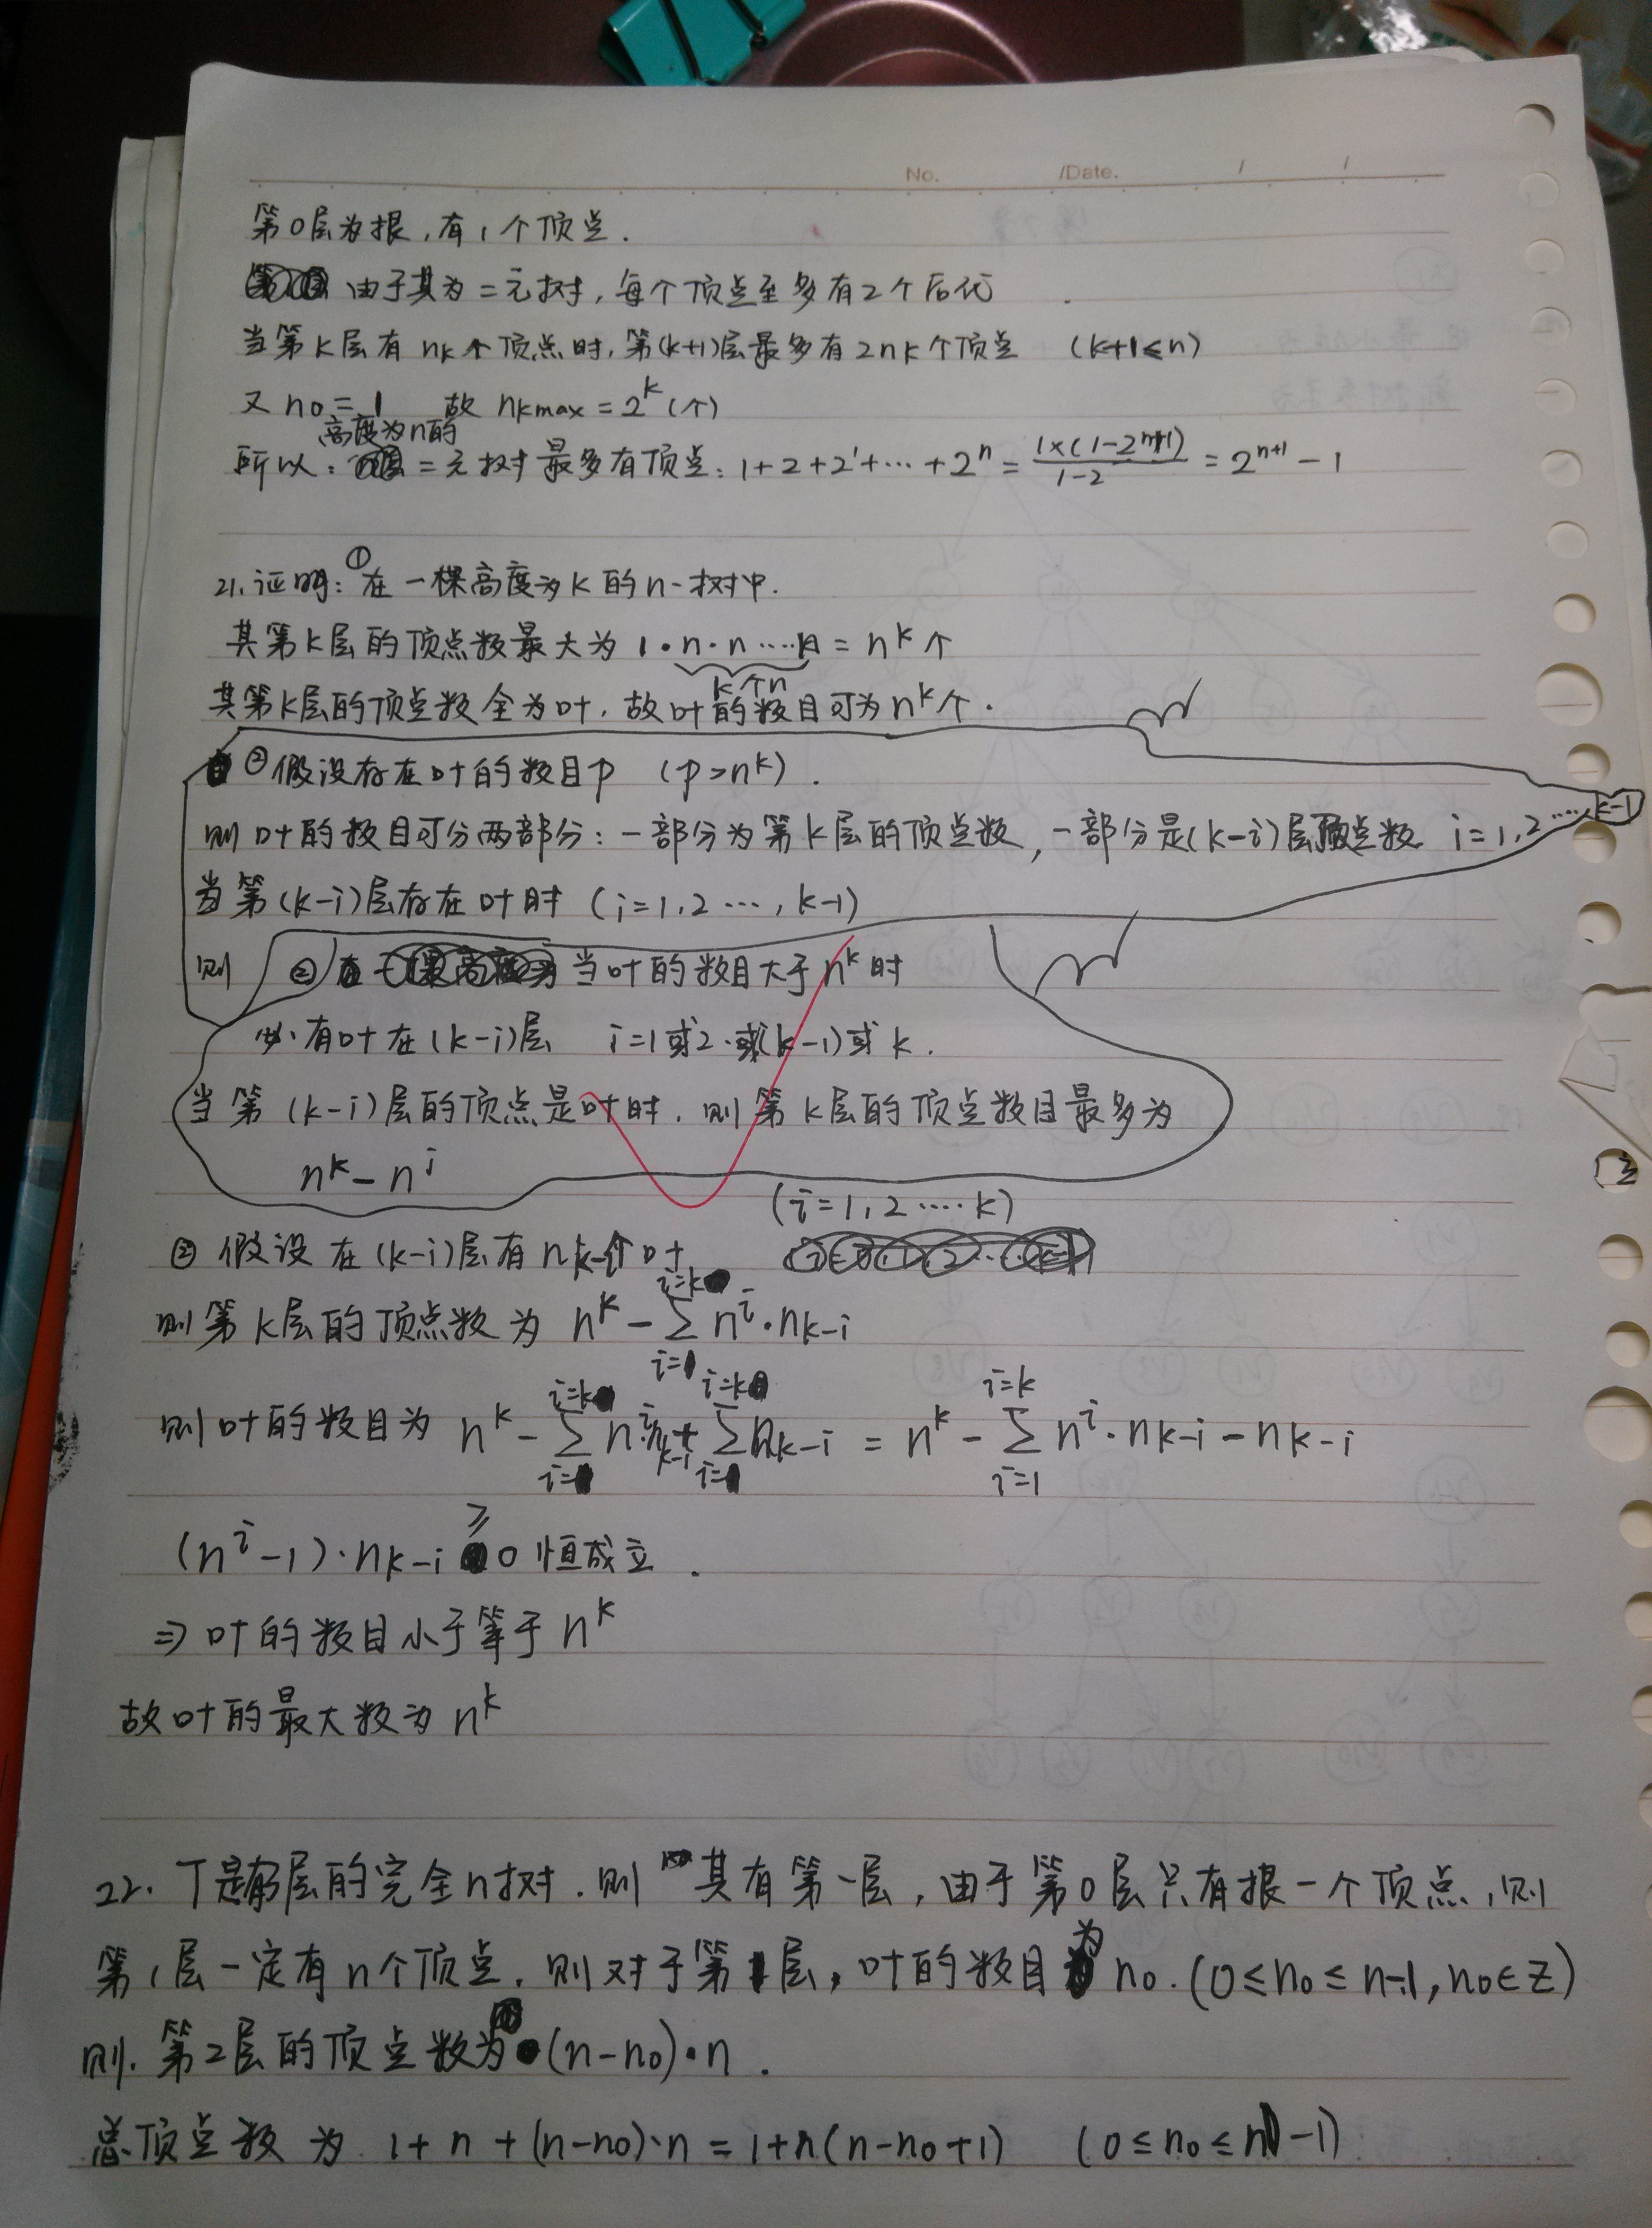 No. /Date. / /
第0层为根,有1个顶点.
由于其为二元树,每个顶点至多有2个后代
当第k层有nk个顶点时,第(k+1)层最多有2nk个顶点 (k+1≤n)
又 n0=1 故 nkmax=2^k(个)
高度为n的
所以: 二元树最多有顶点: 1+2+2^1+…+2^n = (1×(1-2^(n+1)))/(1-2) = 2^(n+1) - 1
21.证明:①在一棵高度为k的n-树中.
其第k层的顶点数最大为 1·n·n·…·n = n^k个
k个n
其第k层的顶点数全为叶,故叶的数目可为n^k个.
②假设存在叶的数目p (p>n^k).
则叶的数目可分两部分:一部分为第k层的顶点数,一部分是(k-i)层顶点数 i=1,2…,k-1
当第(k-i)层存在叶时 (i=1,2…,k-1)
则 ② 当叶的数目大于n^k时
必有叶在(k-i)层 i=1或2·或(k-1)或k.
当第(k-i)层的顶点是叶时,则第k层的顶点数目最多为
n^k - n^i
(i=1,2……k)
② 假设在(k-i)层有nk-i个叶
则第k层的顶点数为 n^k - ∑(i=1, i=k) n^i·nk-i
则叶的数目为 n^k - ∑ n^i·nk-i + ∑ nk-i = n^k - ∑(i=1, i=k) n^i·nk-i - nk-i
(n^i-1)·nk-i ≥ 0 恒成立.
⇒ 叶的数目小于等于 n^k
故叶的最大数为 n^k
22. T是 层的完全n树.则 其有第一层,由于第0层只有根一个顶点,则
第1层一定有n个顶点.则对于第1层,叶的数目为 n0.(0≤n0≤n-1,n0∈Z)
则.第2层的顶点数为(n-n0)·n.
总顶点数为 1+n+(n-n0)·n = 1+n(n-n0+1) (0≤n0≤n-1)